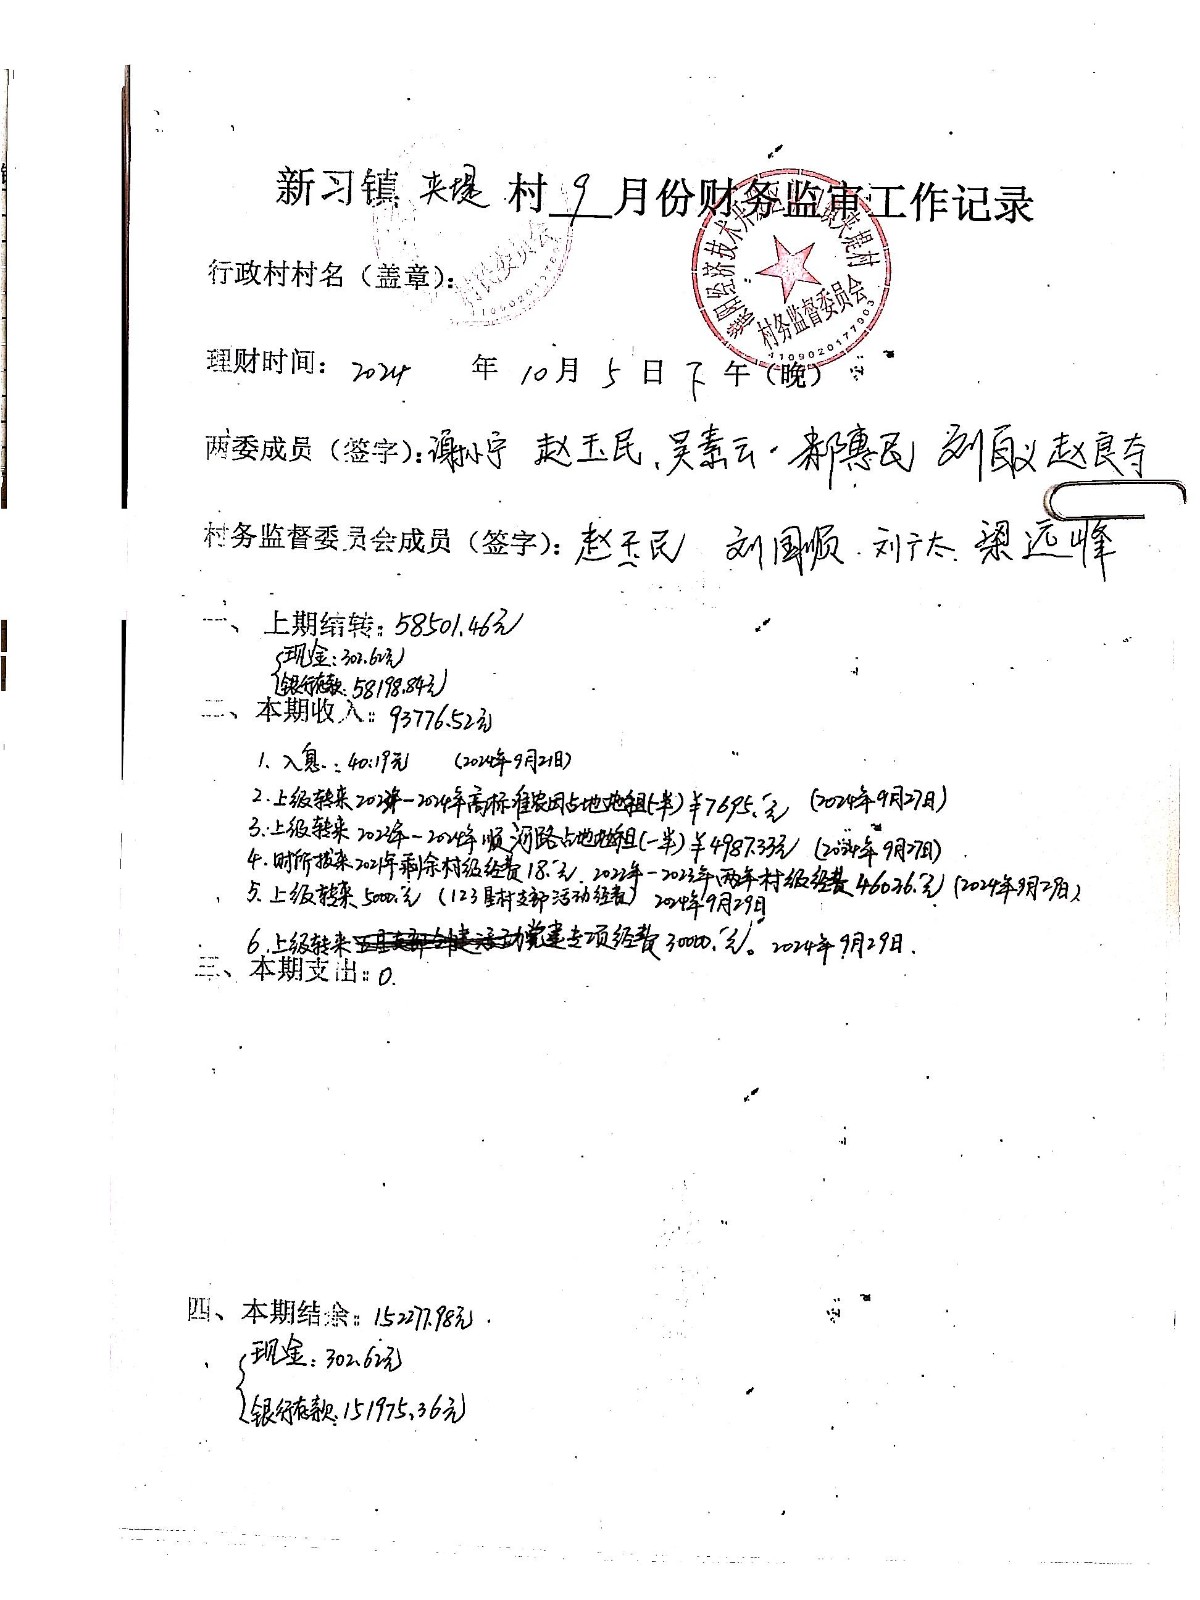 新习镇 夹堤 村 9 月份财务监审工作记录
行政村村名（盖章）：
村民委员会
夹堤村
村务监督委员会
4109020177903
理财时间：2024 年 10 月 5 日 下 午（晚）
两委成员（签字）：谢小宁 赵玉民、吴素云. 郝惠民 刘百义 赵良夺
村务监督委员会成员（签字）：赵玉民 刘国顺. 刘广太. 梁远峰
一、上期结转：58501.46元
现金：302.62元
银行存款：58198.84元
二、本期收入：93776.52元
1. 入息：40.19元 （2024年9月21日）
2.上级转来2023年-2024年高标准农田占地地租(一半)￥7695.元 （2024年9月27日）
3.上级转来2023年-2024年顺河路占地地租(一半)￥4987.33元 （2024年9月27日）
4.财所拨来2021年剩余村级经费18.元. 2022年-2023年两年村级经费46036.元（2024年9月29日）
5.上级转来5000.元（123星村支部活动经费） 2024年9月29日
6.上级转来党建专项经费30000.元。2024年9月29日.
三、本期支出：0.
四、本期结余：152277.98元.
现金：302.62元
银行存款：151975.36元